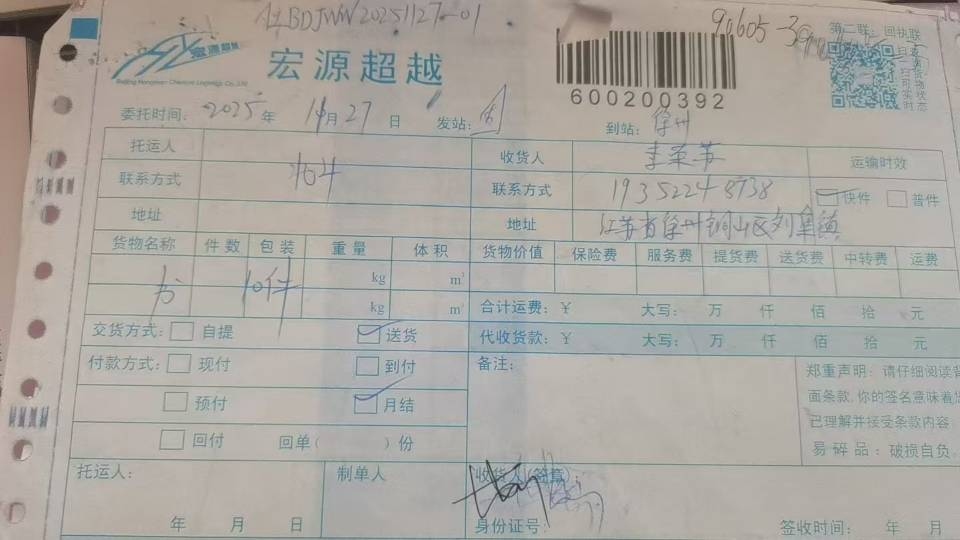 A1BDJWW20251127-01
90605-39
第二联：回执联
宏源超越
宏源超越
Beijing Hongyuan Chaoyue Logistics Co.,Ltd
600200392
扫支
一扫
货
可物
实状
时态
委托时间：2025年 11月27日 发站： 到站：徐州
托运人 收货人 李荣芳 运输时效
联系方式 联系方式 19352248738 快件 普件
地址 地址 江苏省徐州铜山区刘集镇
货物名称 件数 包装 重量 体积 货物价值 保险费 服务费 提货费 送货费 中转费 运费
书 10件 kg m³
kg m³ 合计运费：￥ 大写： 万 仟 佰 拾 元
交货方式： 自提 送货 代收货款：￥ 大写： 万 仟 佰 拾 元
付款方式： 现付 到付 备注： 郑重声明：请仔细阅读背
预付 月结 面条款，你的签名意味着您
回付 回单( )份 已理解并接受条款内容
易碎品：破损自负。
托运人： 制单人 收货人(签章)
年 月 日 身份证号： 签收时间： 年 月